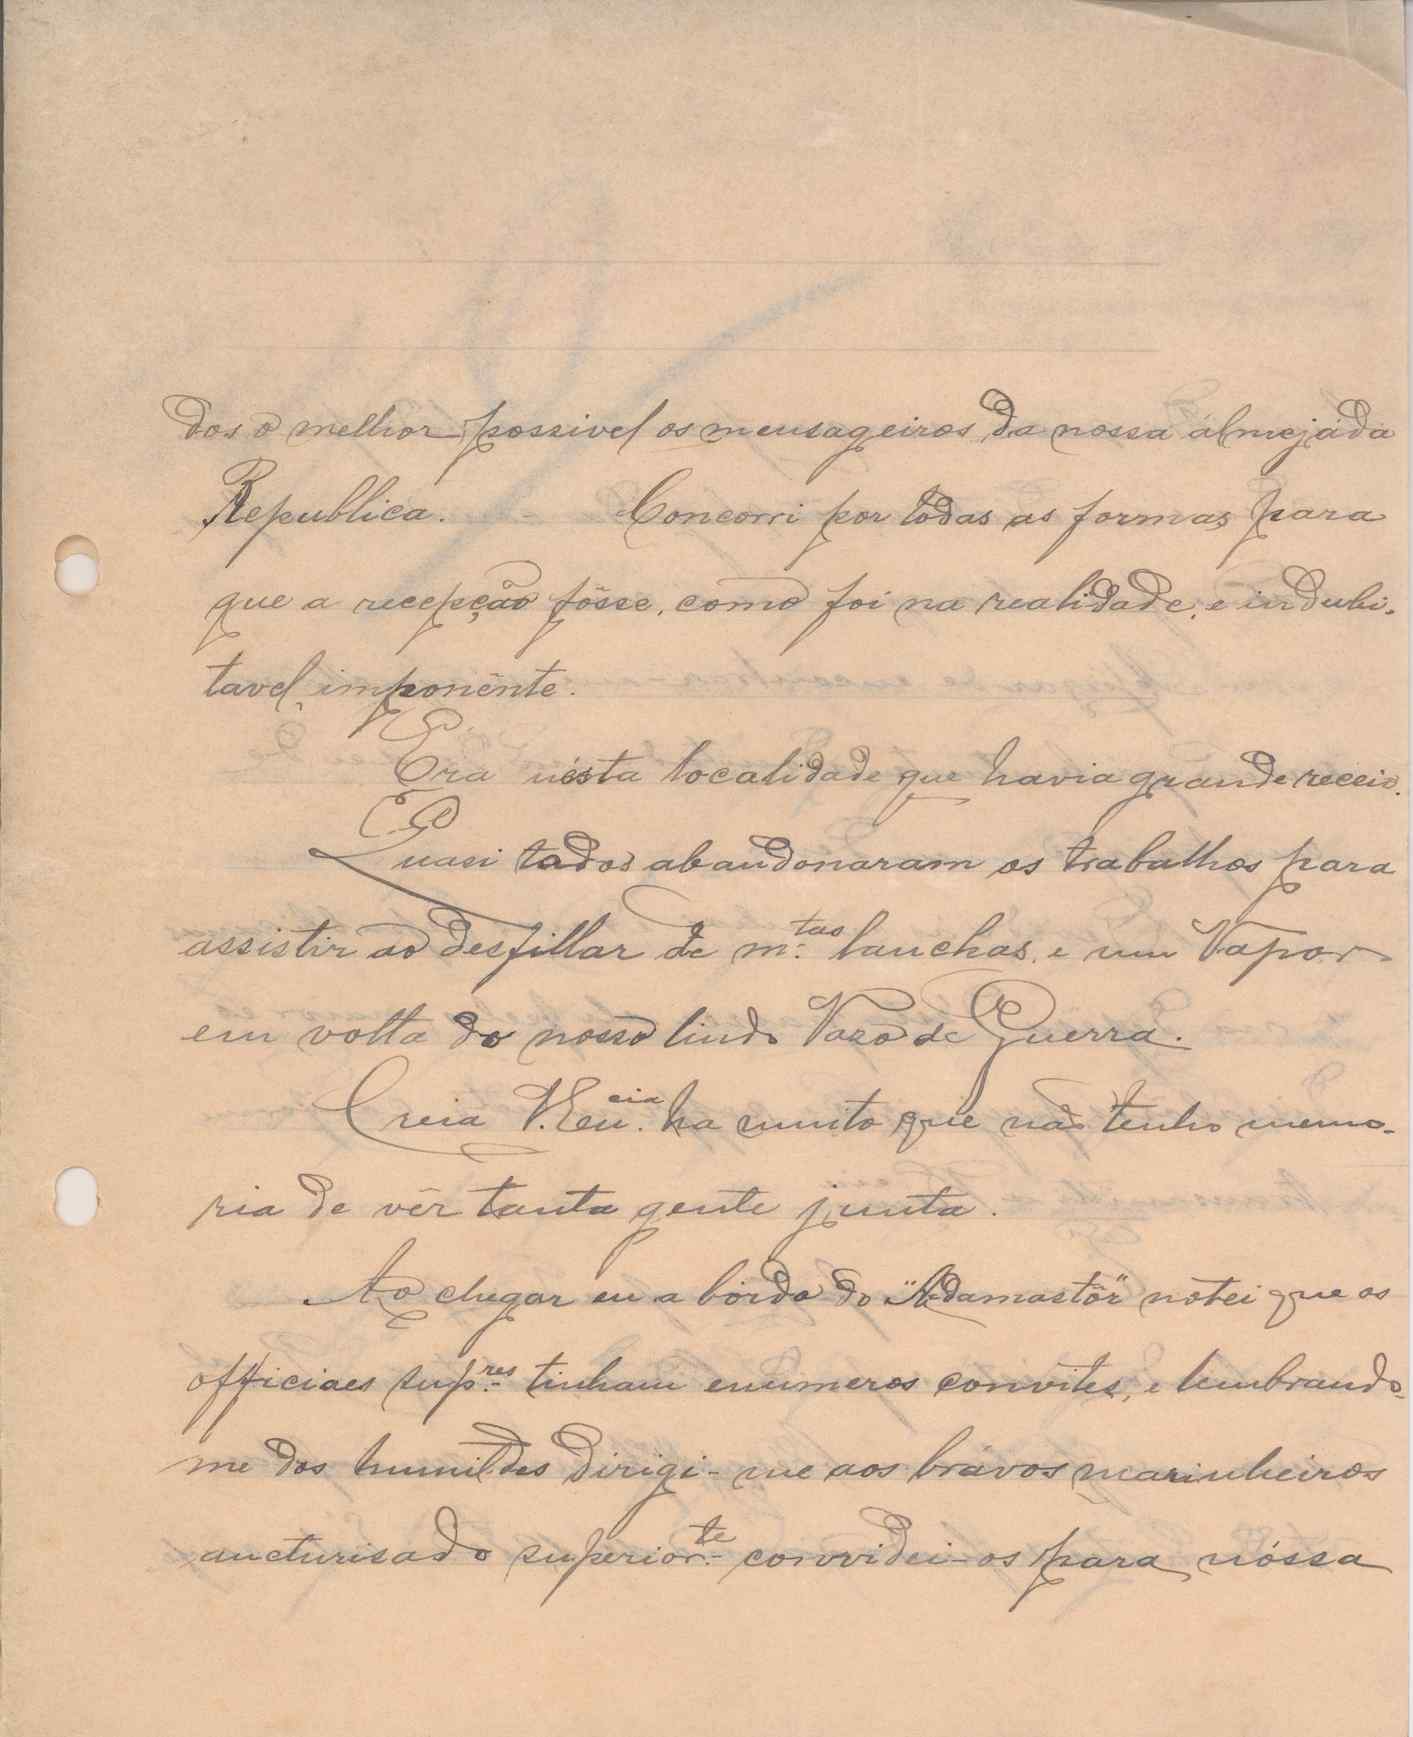 dos o melhor possivel os mensageiros da nossa álmejáda
Republica. - Concorri por todas as formas para
que a recepção fôsse, como foi na realidade, e indubi-
tavel, imponênte.
Era nésta localidade que havia grande receio.
Quasi todos abandonaram os trabalhos para
assistir ao desfillar de m.tas lanchas, e um Vapor
em volta do nosso lindo Vazo de Guerra.
Creia V. En.cia ha muito que não tenho memo-
ria de vêr tanta gente junta.
Ao chegar eu a bórdo do "Adamastôr" notei que os
officiaes sup.res tinham enumeros convites, e lembrando-
me dos humildes dirigi-me aos brávos marinheiros
aucturisado superior.te convidei-os para nóssa